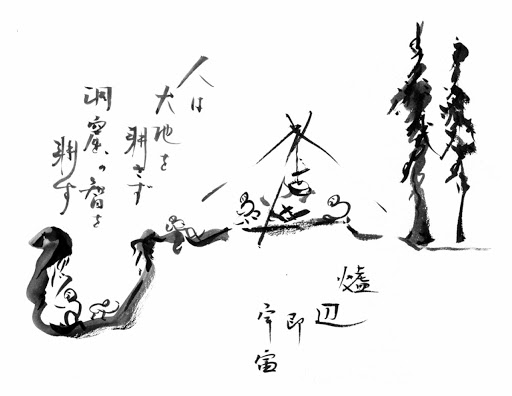 人は
大地を
耕さず
洞窟の智を
耕す
爐辺
即
宇宙